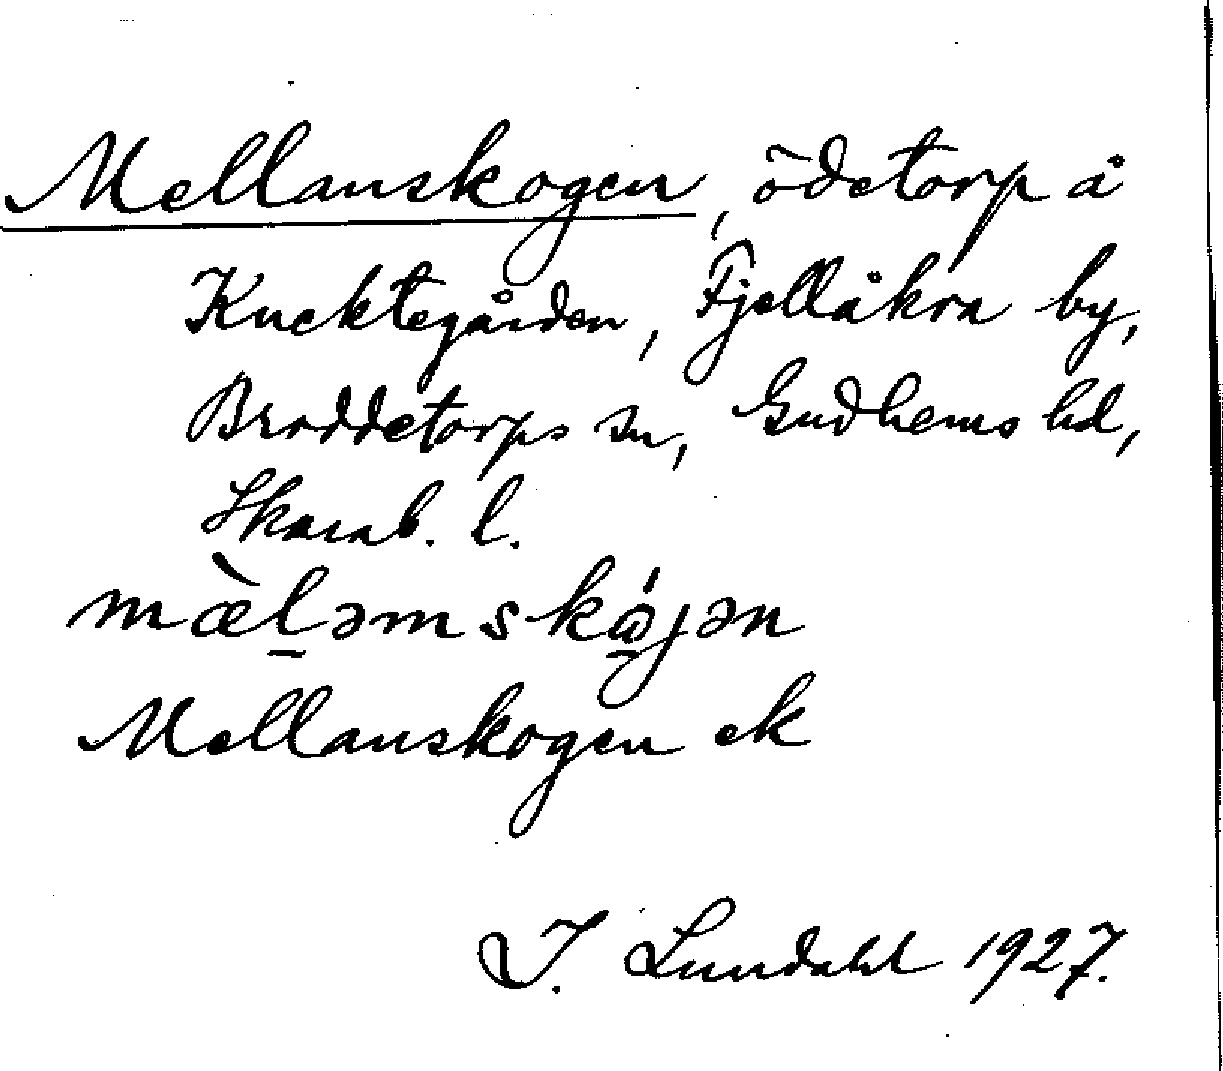 Mellanskogen, ödetorp å
Knecktegården, Fjellåkra by,
Broddetorps sn, Gudhems hd,
Skarab. l.
mæ̀l̠əmskǻ̠jən
Mellanskogen ek
I. Lundahl 1927.